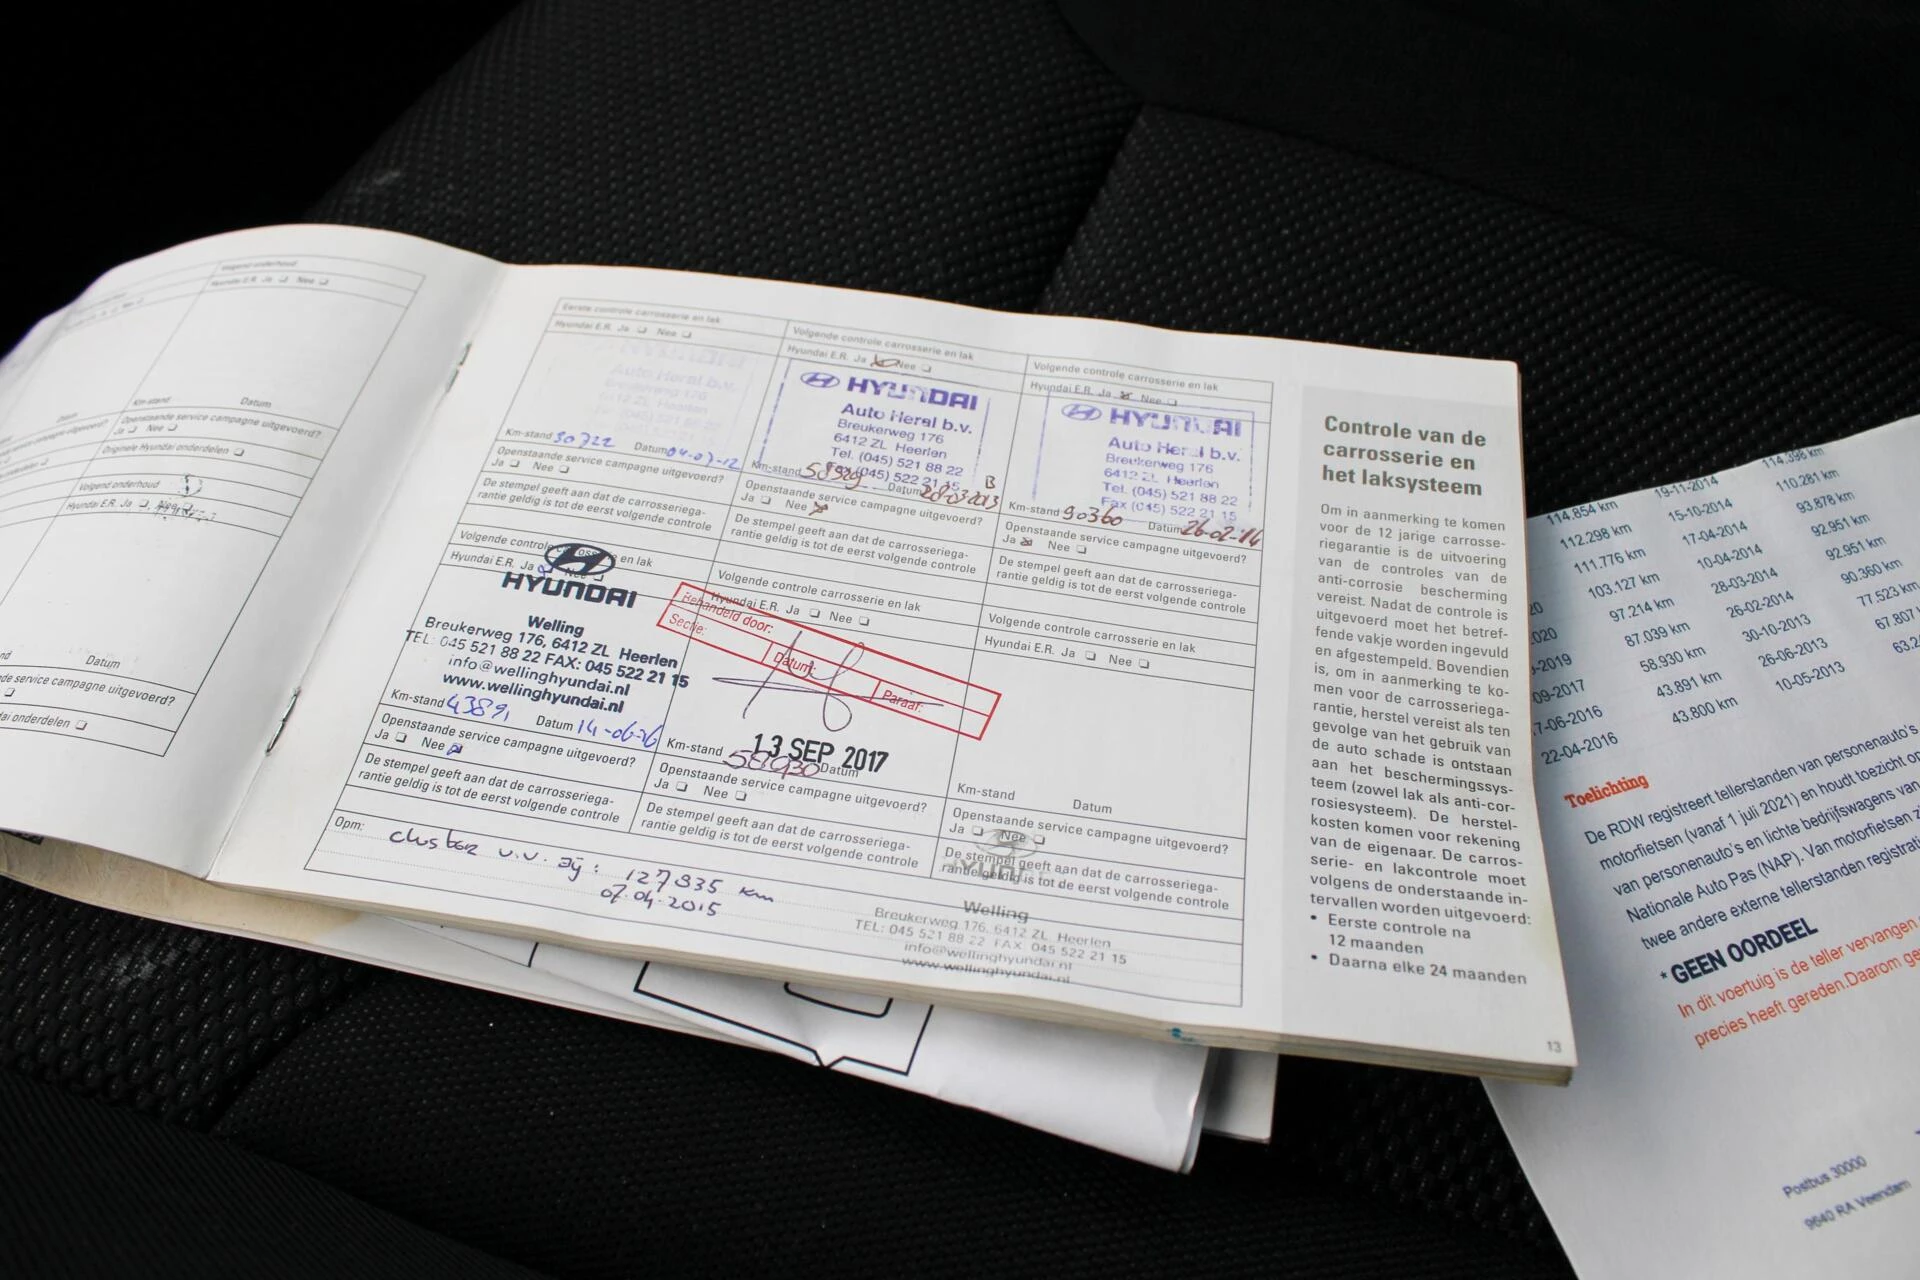 Volgend onderhoud
Hyundai E.R. Ja Nee
Km-stand Datum
Openstaande service campagne uitgevoerd?
Ja Nee
Originele Hyundai onderdelen
Volgend onderhoud
Hyundai E.R. Ja Nee
Datum
Eerste controle carrosserie en lak
Hyundai E.R. Ja Nee
Auto Heral b.v.
Breukerweg 176
6412 ZL Heerlen
Km-stand 30722 Datum 04-07-12
Openstaande service campagne uitgevoerd?
Ja Nee
De stempel geeft aan dat de carrosseriega-
rantie geldig is tot de eerst volgende controle
Volgende controle carrosserie en lak
Hyundai E.R. Ja Nee
HYUNDAI
Auto Heral b.v.
Breukerweg 176
6412 ZL Heerlen
Tel. (045) 521 88 22
Fax (045) 522 21 15
Km-stand Datum 28-03-2013
Openstaande service campagne uitgevoerd?
Ja Nee
De stempel geeft aan dat de carrosseriega-
rantie geldig is tot de eerst volgende controle
Volgende controle carrosserie en lak
Hyundai E.R. Ja Nee
HYUNDAI
Auto Heral b.v.
Breukerweg 176
6412 ZL Heerlen
Tel. (045) 521 88 22
Fax (045) 522 21 15
Km-stand 90360 Datum 26-02-'14
Openstaande service campagne uitgevoerd?
Ja Nee
De stempel geeft aan dat de carrosseriega-
rantie geldig is tot de eerst volgende controle
Volgende controle carrosserie en lak
Hyundai E.R. Ja Nee
HYUNDAI
Welling
Breukerweg 176, 6412 ZL Heerlen
TEL: 045 521 88 22 FAX: 045 522 21 15
info@wellinghyundai.nl
www.wellinghyundai.nl
Km-stand 43891 Datum 14-06-16
Openstaande service campagne uitgevoerd?
Ja Nee
De stempel geeft aan dat de carrosseriega-
rantie geldig is tot de eerst volgende controle
Volgende controle carrosserie en lak
Hyundai E.R. Ja Nee
Behandeld door:
Sectie:
Datum:
Paraaf:
13 SEP 2017
Km-stand 58930 Datum
Openstaande service campagne uitgevoerd?
Ja Nee
De stempel geeft aan dat de carrosseriega-
rantie geldig is tot de eerst volgende controle
Volgende controle carrosserie en lak
Hyundai E.R. Ja Nee
Km-stand Datum
Openstaande service campagne uitgevoerd?
Ja Nee
De stempel geeft aan dat de carrosseriega-
rantie geldig is tot de eerst volgende controle
Opm: cluster v.v. bij: 127835 km
07.04.2015
Welling
Breukerweg 176, 6412 ZL Heerlen
TEL: 045 521 88 22 FAX 045 522 21 15
info@wellinghyundai.nl
www.wellinghyundai.nl
Controle van de
carrosserie en
het laksysteem
Om in aanmerking te komen
voor de 12 jarige carrosse-
riegarantie is de uitvoering
van de controles van de
anti-corrosie bescherming
vereist. Nadat de controle is
uitgevoerd moet het betref-
fende vakje worden ingevuld
en afgestempeld. Bovendien
is, om in aanmerking te ko-
men voor de carrosseriega-
rantie, herstel vereist als ten
gevolge van het gebruik van
de auto schade is ontstaan
aan het beschermingssys-
teem (zowel lak als anti-cor-
rosiesysteem). De herstel-
kosten komen voor rekening
van de eigenaar. De carros-
serie- en lakcontrole moet
volgens de onderstaande in-
tervallen worden uitgevoerd:
• Eerste controle na
12 maanden
• Daarna elke 24 maanden
13
114.854 km 19-11-2014 114.398 km
112.298 km 15-10-2014 110.281 km
111.776 km 17-04-2014 93.878 km
103.127 km 10-04-2014 92.951 km
97.214 km 28-03-2014 92.951 km
87.039 km 26-02-2014 90.360 km
58.930 km 30-10-2013 77.523 km
43.891 km 26-06-2013 67.807
22-04-2016 43.800 km 10-05-2013
Toelichting
De RDW registreert tellerstanden van personenauto's
motorfietsen (vanaf 1 juli 2021) en houdt toezicht op
van personenauto's en lichte bedrijfswagens van
Nationale Auto Pas (NAP). Van motorfietsen
twee andere externe tellerstanden
* GEEN OORDEEL
In dit voertuig is de teller vervangen
precies heeft gereden. Daarom
Postbus 30000
9640 RA Veendam